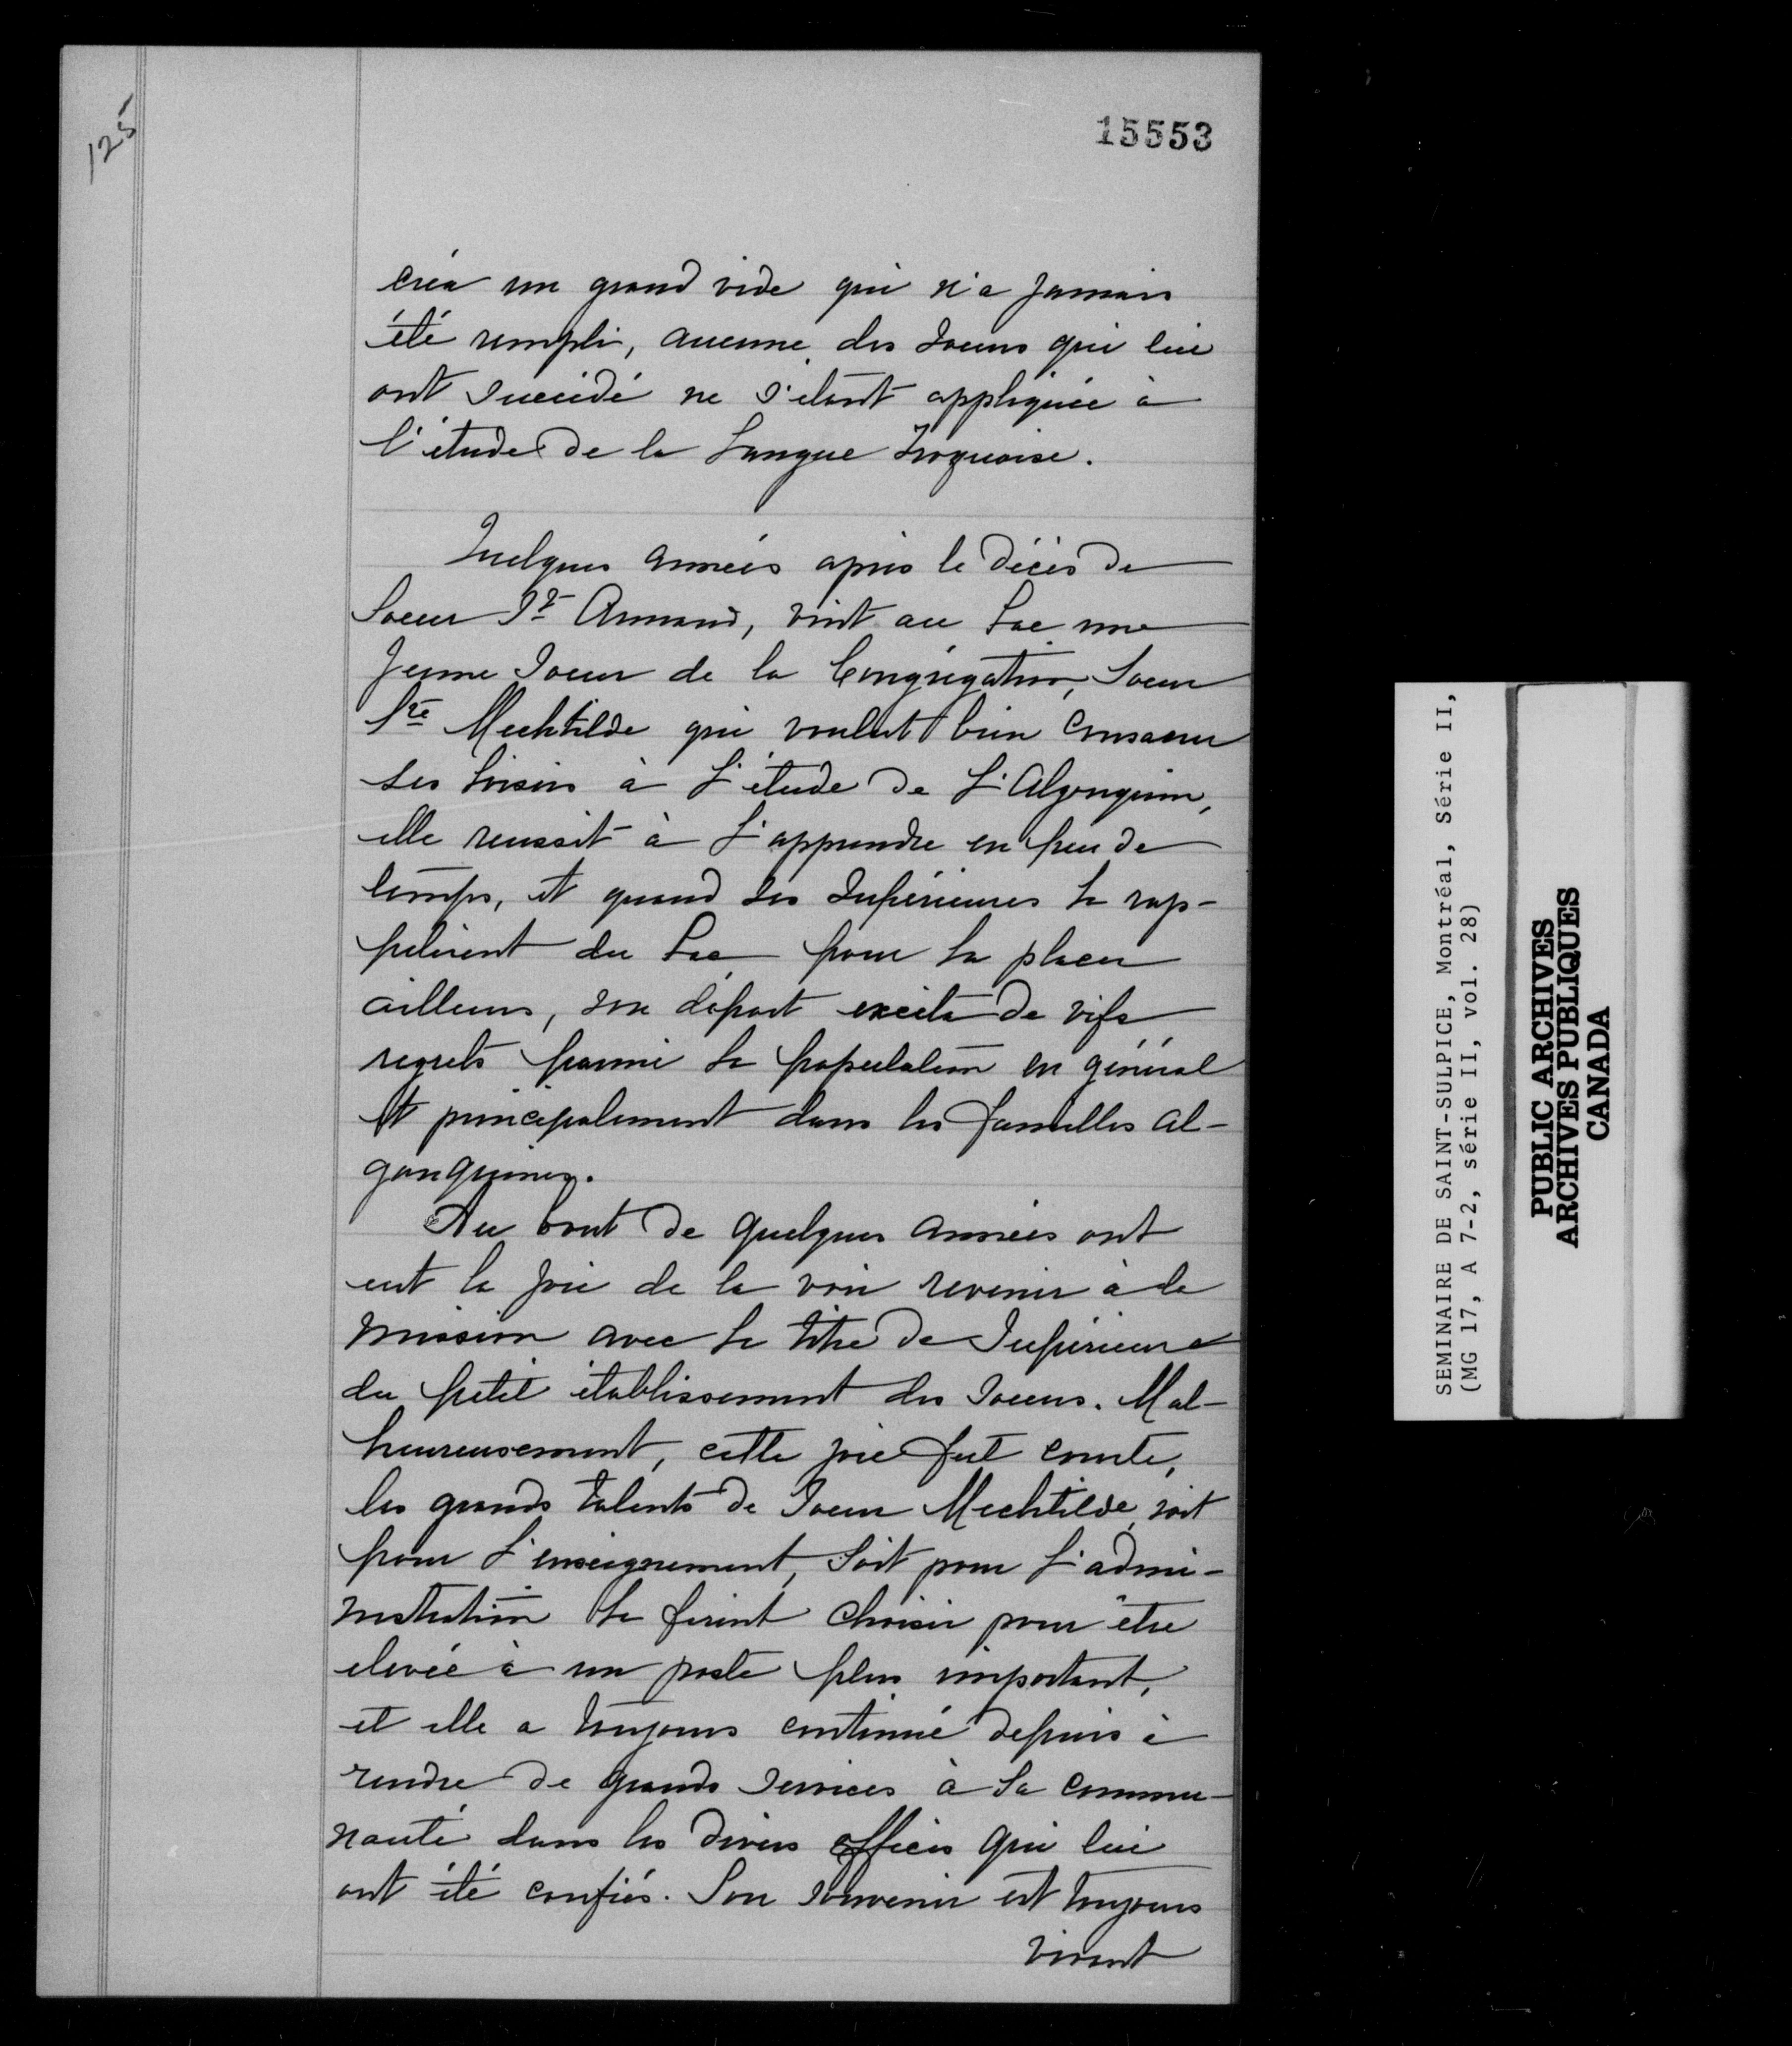 125
15553
créa un grand vide qui n'a jamais
été rempli, aucune des soeurs qui lui
ont succédé ne s'étant appliquée à
l'étude de la langue Iroquoise.
Quelques années après le décès de
Soeur St Armand, vint au Lac une
jeune soeur de la Congrégation, Soeur
Ste Mechtilde qui voulut bien consacrer
ses loisirs à l'étude de l'Algonquin,
elle reussit à l'apprendre en peu de
temps, et quand ses supérieures la rap-
pelèrent du Lac pour la placer
ailleurs, son départ excita de vifs
regrets parmi la population en général
et principalement dans les familles al-
gonquines.
Au bout de quelques années ont
eut la joie de la voir revenir à la
mission avec le titre de Supérieure
du petit établissement des soeurs. Mal-
heureusement, cette joie fut courte,
les grands talents de Soeur Mechtilde, soit
pour l'enseignement, soit pour l'admi-
nistration la firent choisir pour être
elevée à un poste plus important,
et elle a toujours continué depuis à
rendre de grands services à sa commu-
nauté dans les divers offices qui lui
ont été confiés. Son souvenir est toujours
vivant
SEMINAIRE DE SAINT-SULPICE, Montréal, Série II,
(MG 17, A 7-2, série II, vol. 28)
PUBLIC ARCHIVES
ARCHIVES PUBLIQUES
CANADA